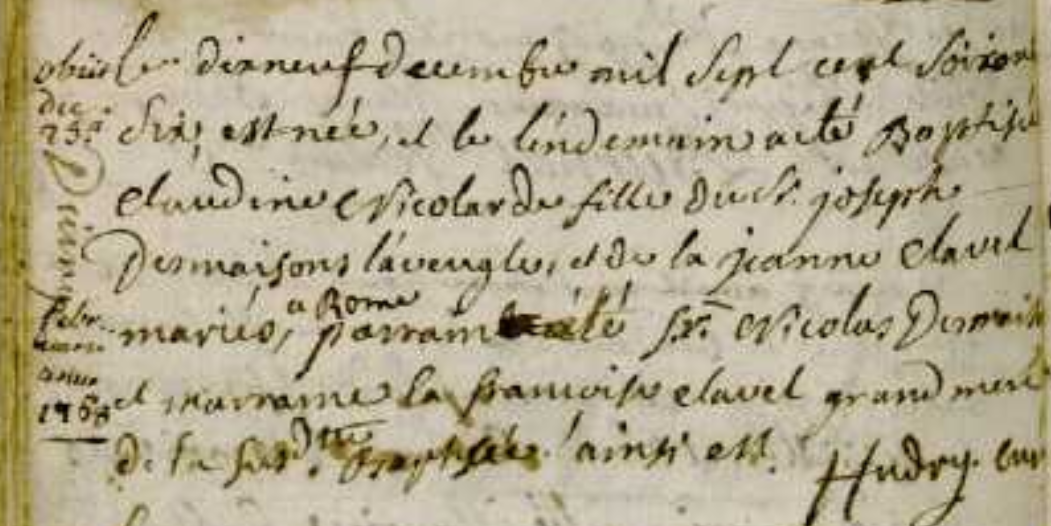 obiit
die
23a
le dixneuf decembre mil sept cent soixan
six, est née, et le lendemain a été Baptisé
claudine Nicolarde fille du Sr. joseph
Desmaisons l'aveugle, et de la jeanne clavel
a Rome
mariés, parrain a été Sr. Nicolas Desmais
et marraine la francoise clavel grand mere
de la susdte Baptisée. ainsi est. Hudry. cur